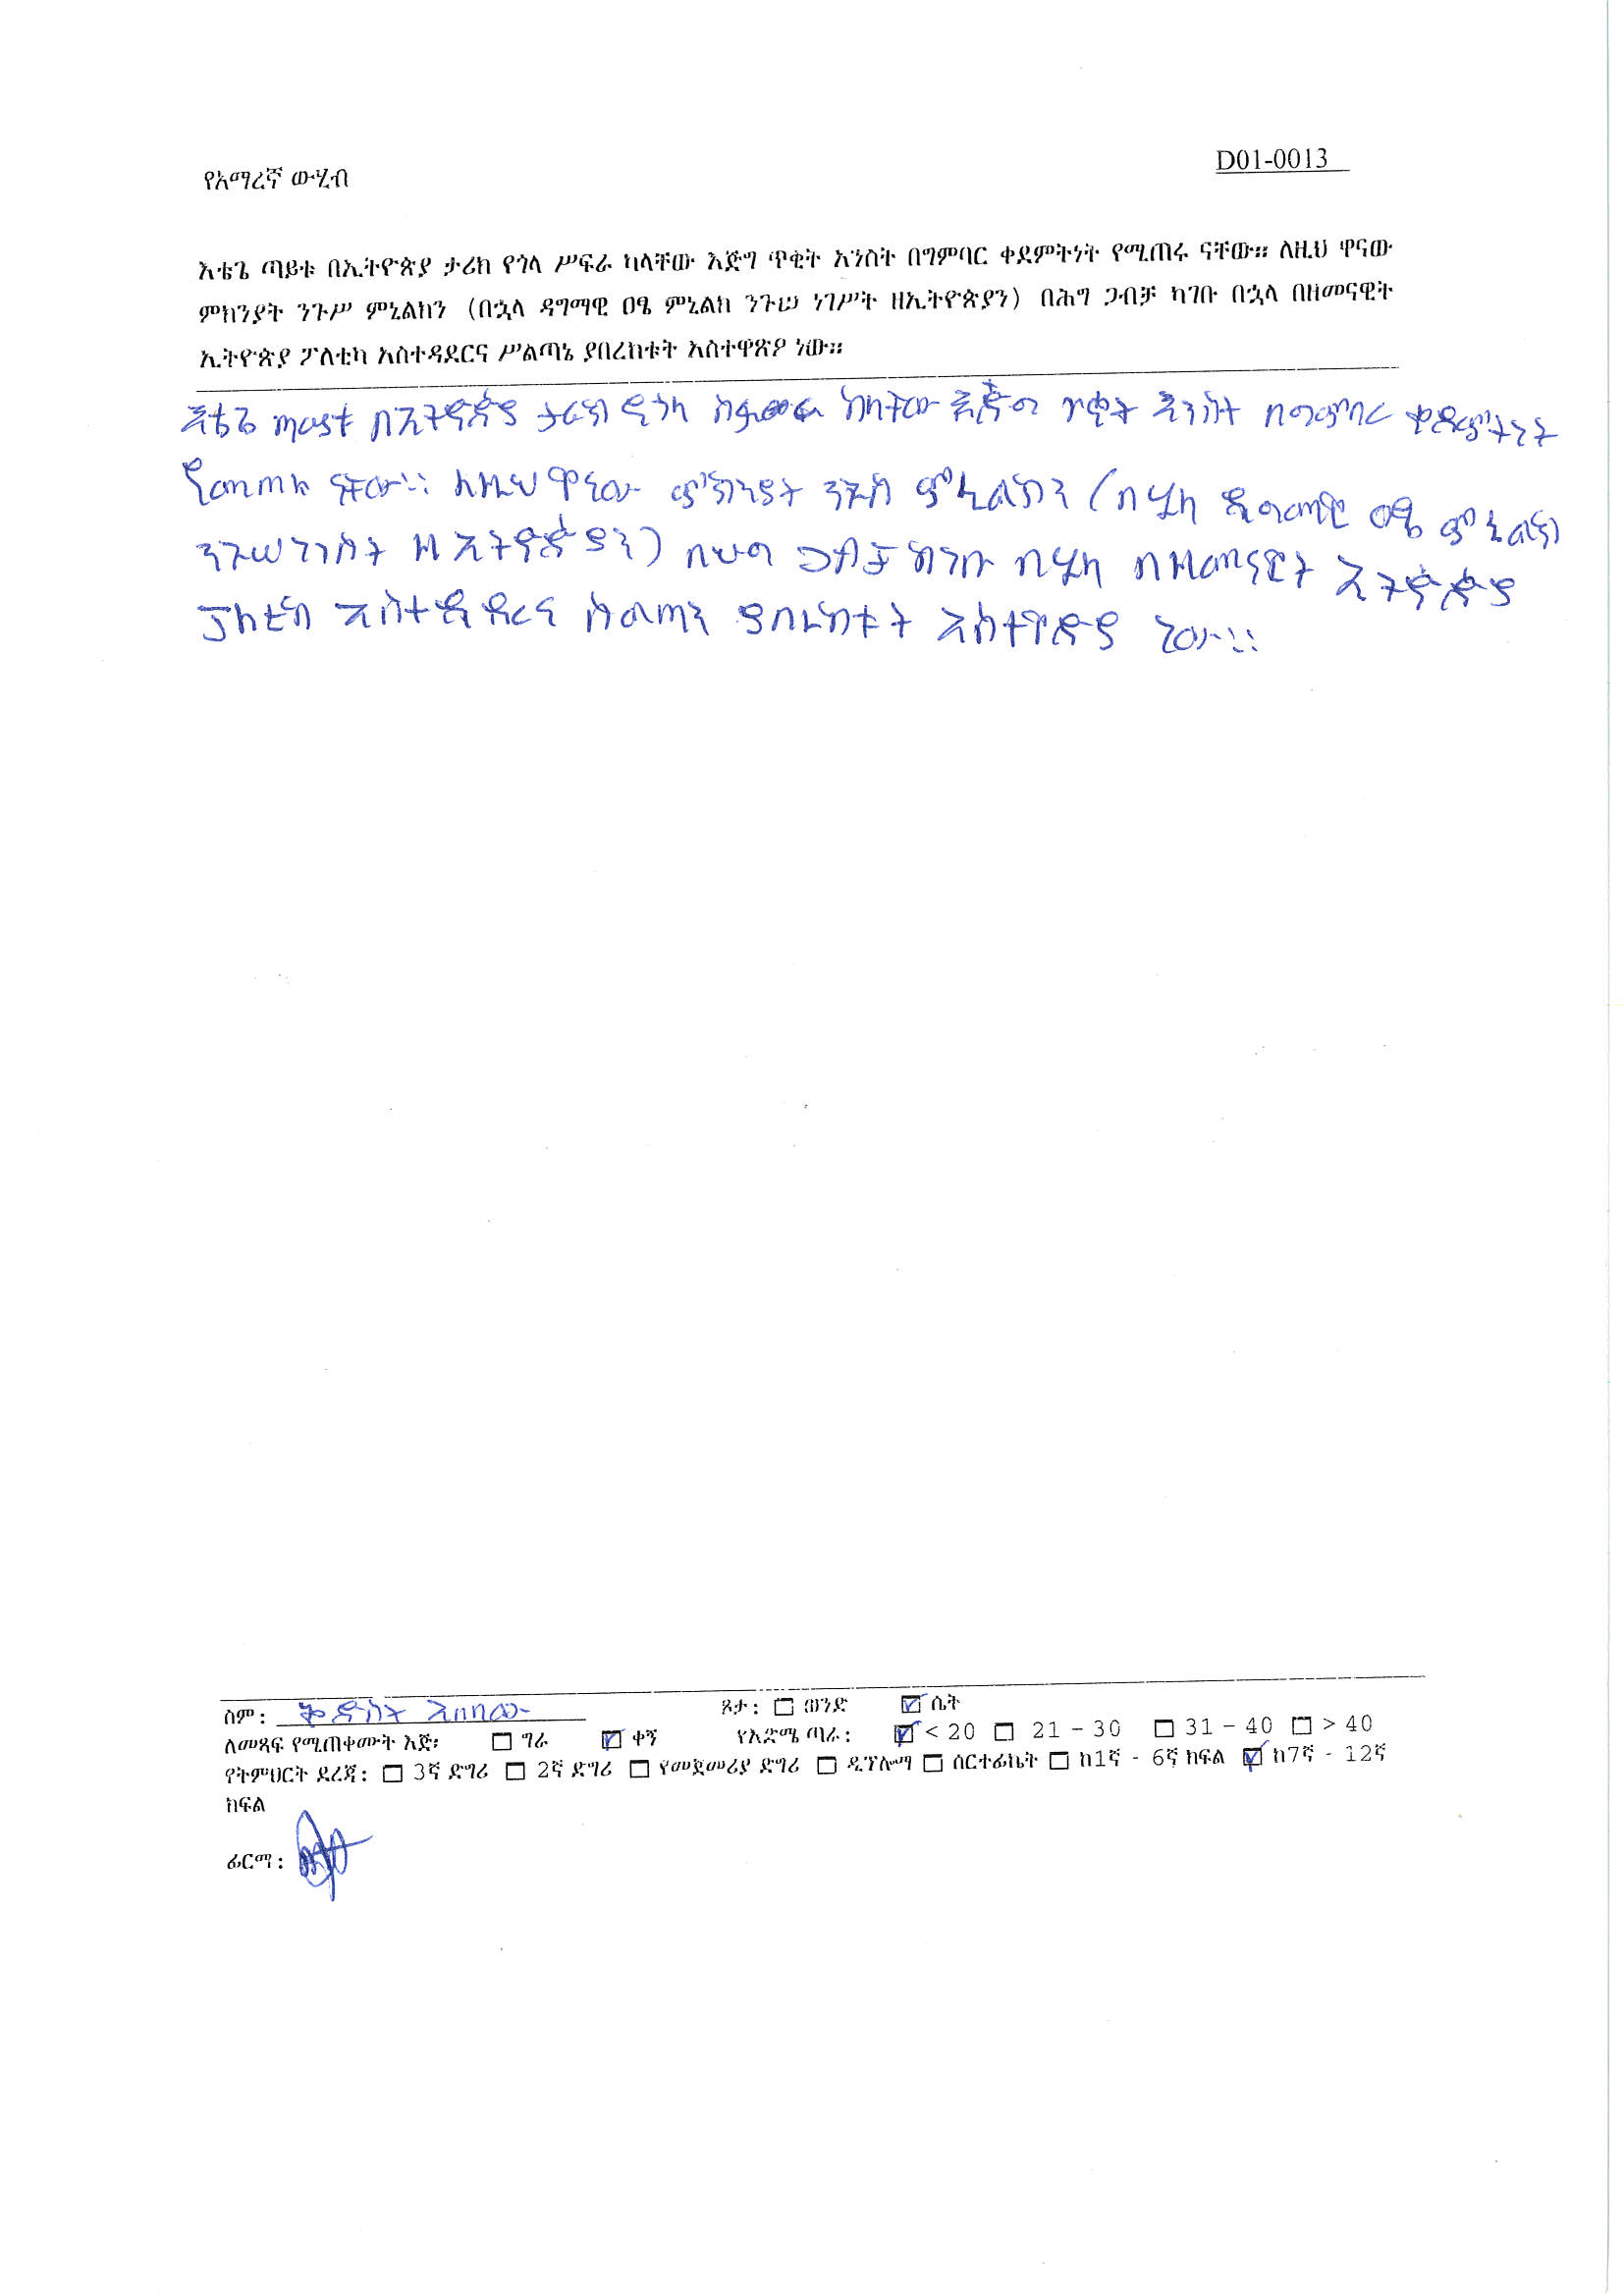 የአማረኛ ውሂብ
D01-0013
እቴጌ ጣይቱ በኢትዮጵያ ታሪክ የጎላ ሥፍራ ካላቸው እጅግ ጥቂት አንስት በግምባር ቀደምትነት የሚጠሩ ናቸው። ለዚህ ዋናው
ምክንያት ንጉሥ ምኒልክን (በኋላ ዳግማዊ ዐፄ ምኒልክ ንጉሠ ነገሥት ዘኢትዮጵያን) በሕግ ጋብቻ ካገቡ በኋላ በዘመናዊት
ኢትዮጵያ ፖለቲካ አስተዳደርና ሥልጣኔ ያበረከቱት አስተዋጽዖ ነው።
እቴጌ ጣይቱ በኢትዮጵያ ታሪክ የጎላ ካላቸው እጅግ ጥቂት እንስት በግምባር ቀደምትነት
የሚጠሩ ናቸው። ለዚህ ዋናው ምክንያት ንጉስ ምኒልክን (በኋላ ዳግማዊ ዐፄ ምኒልክ
ንጉሠ ነገስት ዘኢትዮጵያን) በህግ ጋብቻ ካገቡ በኋላ በዘመናዊት ኢትዮጵያ
ፖለቲካ አስተዳደርና ስልጣን ያበረከቱት አስተዋጽያ ነው።
ስም: ቅድስት አበባው ጾታ: ወንድ ሴት
ለመጻፍ የሚጠቀሙት እጅ፡ ግራ ቀኝ የእድሜ ጣራ: < 20 21 - 30 31 - 40 > 40
የትምህርት ደረጃ: 3ኛ ድግሪ 2ኛ ድግሪ የመጀመሪያ ድግሪ ዲፕሎማ ሰርተፊኬት ከ1ኛ - 6ኛ ክፍል ከ7ኛ - 12ኛ
ክፍል
ፊርማ: